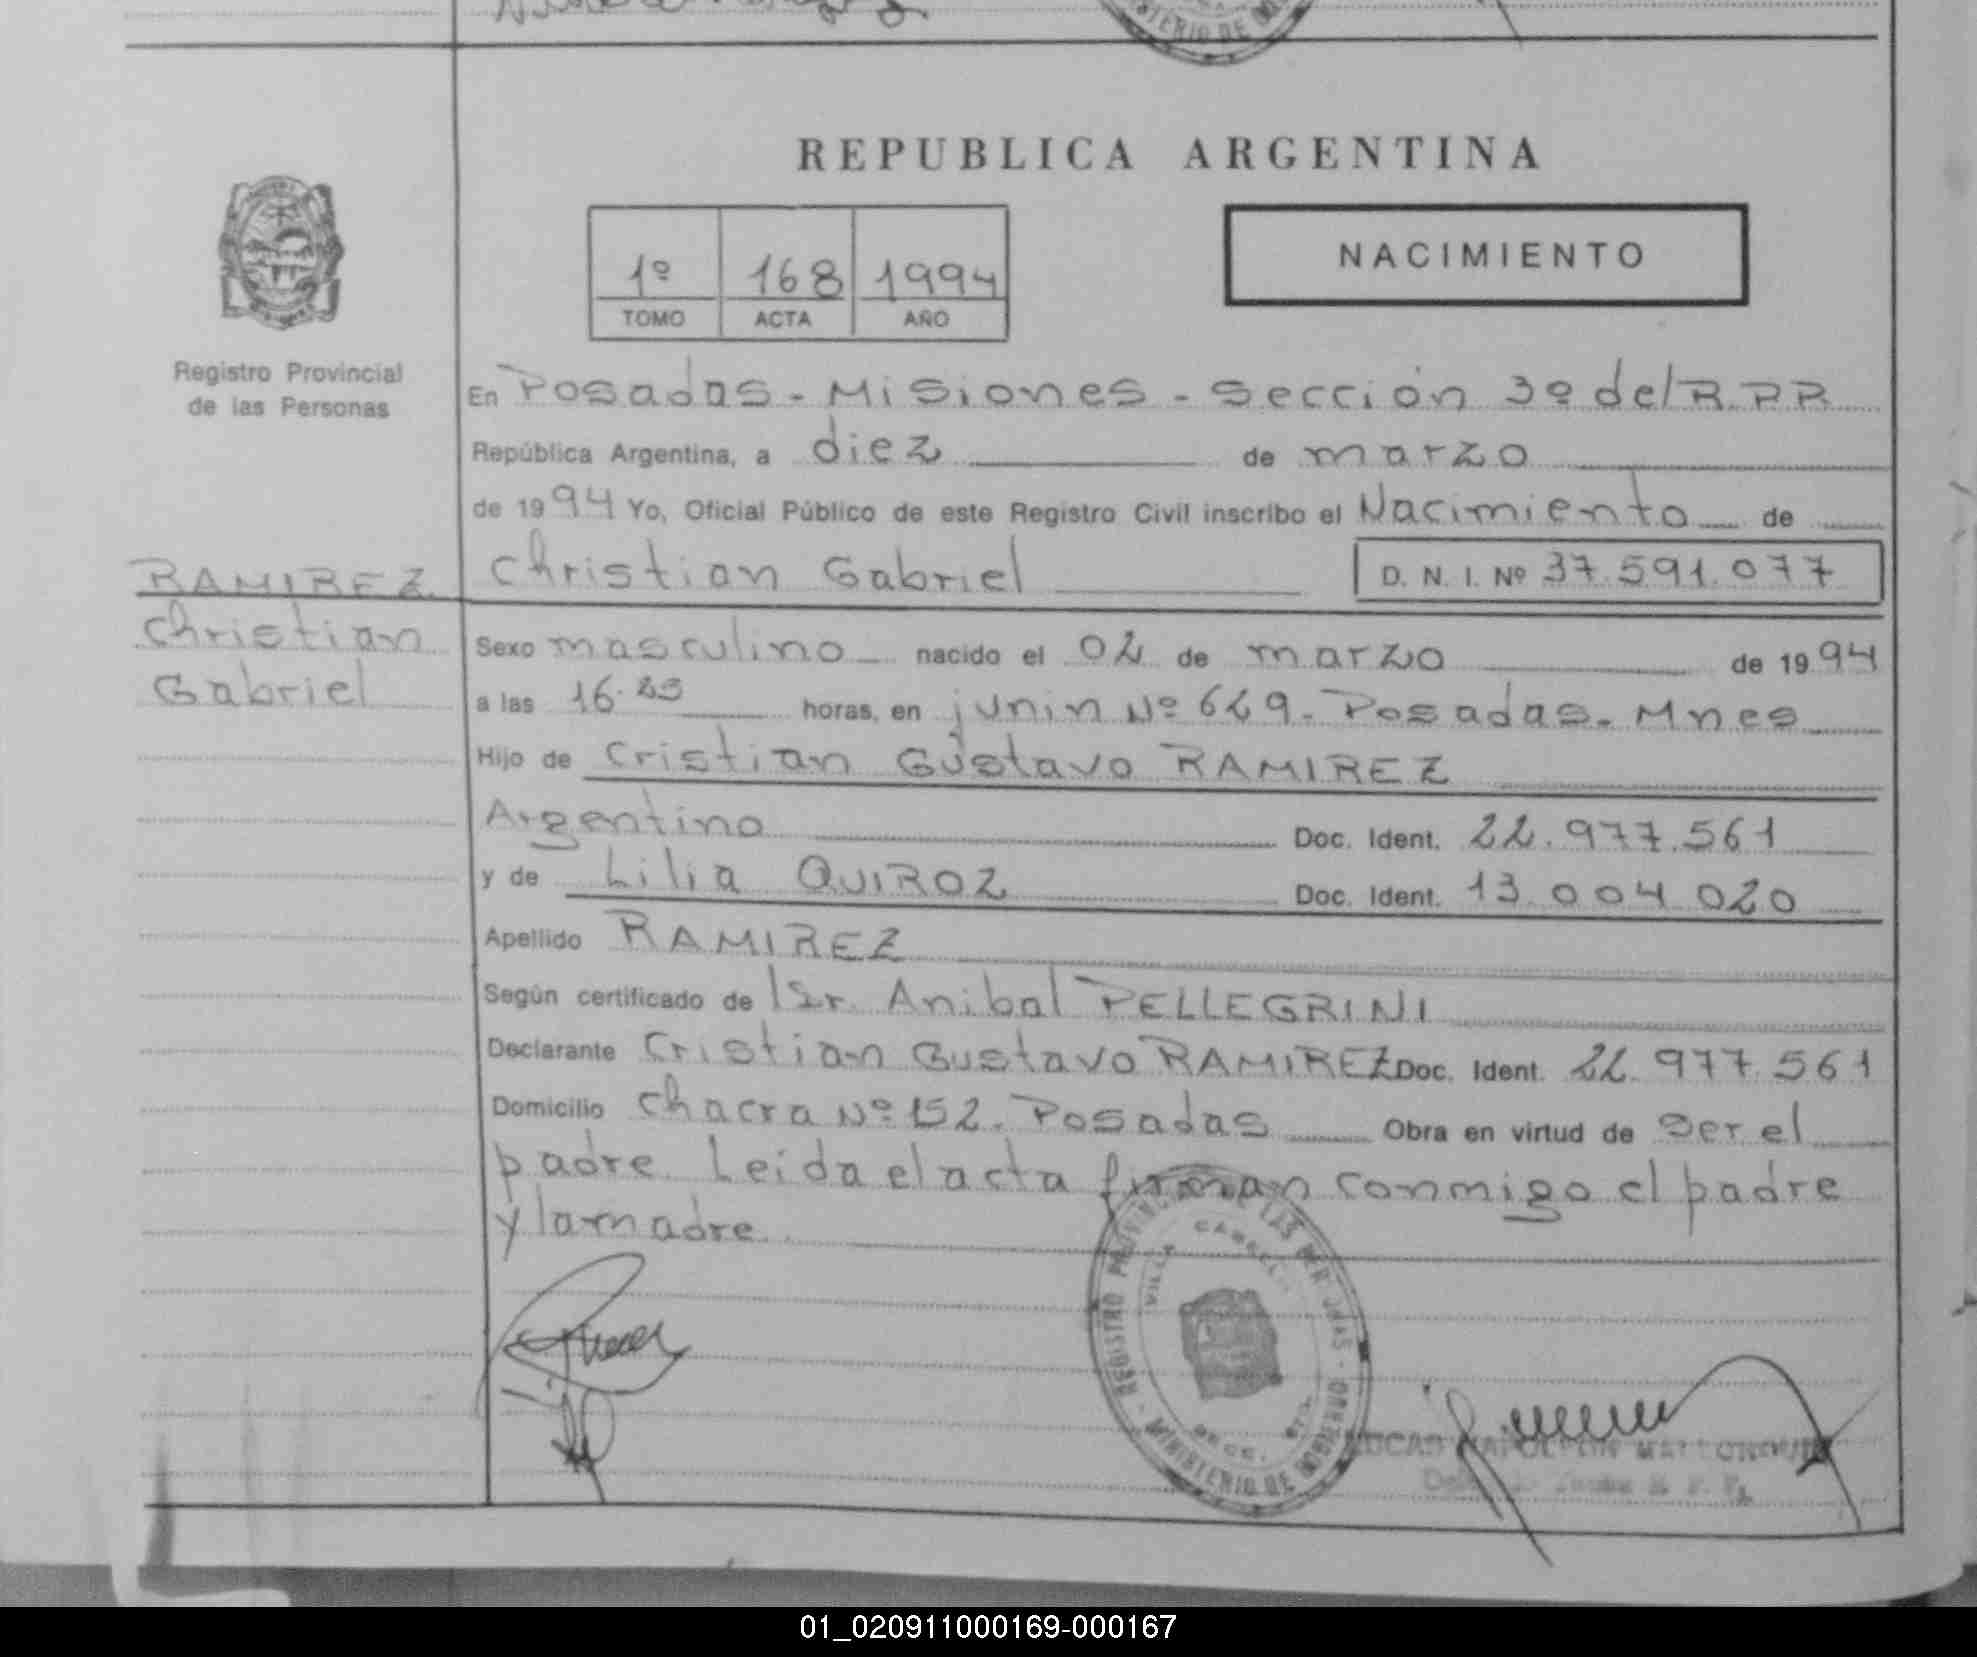 REPUBLICA ARGENTINA
1º 168 1994
TOMO ACTA AÑO
NACIMIENTO
Registro Provincial
de las Personas
RAMIREZ
Christian
Gabriel
En Posadas - Misiones - Sección 3º del R.P.P.
República Argentina, a diez de marzo
de 1994 Yo, Oficial Público de este Registro Civil inscribo el Nacimiento de
Christian Gabriel D. N. I. Nº 37.591.077
Sexo masculino nacido el 02 de marzo de 1994
a las 16 horas, en junin Nº 629. Posadas. Mnes
Hijo de Cristian Gustavo RAMIREZ
Argentino Doc. Ident. 22.977.561
y de Lilia QUIROZ Doc. Ident. 13.004.020
Apellido RAMIREZ
Según certificado de Anibal PELLEGRINI
Declarante Cristian Gustavo RAMIREZ Doc. Ident. 22.977.561
Domicilio Chacra Nº 152. Posadas Obra en virtud de ser el
padre. Leida el acta firman conmigo el padre
y la madre.
REGISTRO PROVINCIAL DE LAS PERSONAS - MINISTERIO DE GOBIERNO -
VILLA
01_020911000169-000167